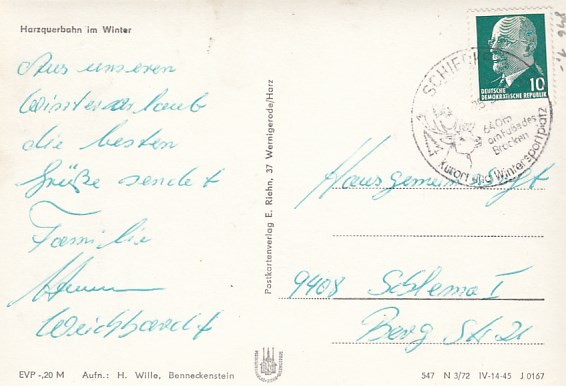 Harzquerbahn im Winter
Aus unseren
Winterurlaub
die besten
Grüße sendet
Familie
Weichbrodt
Postkartenverlag E. Riehn, 37 Wernigerode/Harz
10
DEUTSCHE
DEMOKRATISCHE REPUBLIK
SCHIERKE
640m
am Fuße des
Brocken
Kurort und Wintersportplatz
Hausgemeinschaft
9408 Schlema I
Berg Str. 21
EVP -,20 M Aufn.: H. Wille, Benneckenstein
547 N 3/72 IV-14-45 J 0167